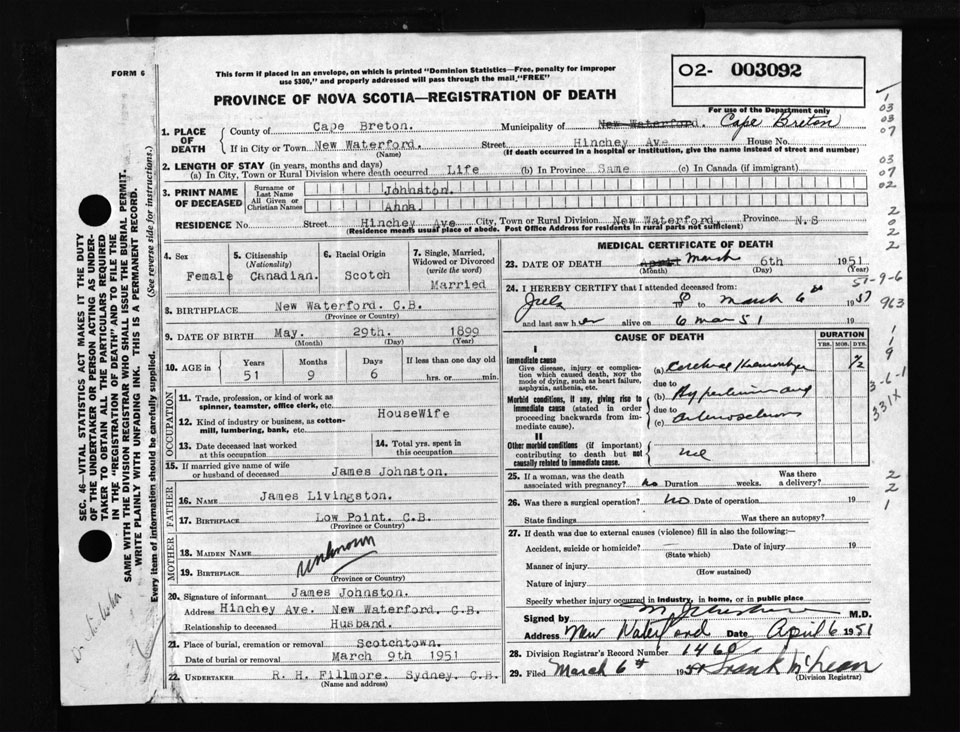 FORM 6
This form if placed in an envelope, on which is printed "Dominion Statistics—Free, penalty for improper
use $300," and properly addressed will pass through the mail, "FREE"
02- 003092
For use of the Department only
PROVINCE OF NOVA SCOTIA—REGISTRATION OF DEATH
1. PLACE OF DEATH
County of Cape Breton. Municipality of New Waterford. Cape Breton
If in City or Town New Waterford. Street Hinchey Ave House No.
(Name) (If death occurred in a hospital or institution, give the name instead of street and number)
2. LENGTH OF STAY (in years, months and days)
(a) In City, Town or Rural Division where death occurred Life (b) In Province Same (c) In Canada (if immigrant)
3. PRINT NAME OF DECEASED
Surname or Last Name Johnston.
All Given or Christian Names Anna.
RESIDENCE No. Street Hinchey Ave City, Town or Rural Division New Waterford. Province N.S
(Residence means usual place of abode. Post Office Address for residents in rural parts not sufficient)
4. Sex Female
5. Citizenship (Nationality) Canadian.
6. Racial Origin Scotch
7. Single, Married, Widowed or Divorced (write the word) Married
8. BIRTHPLACE New Waterford. C.B.
(Province or Country)
9. DATE OF BIRTH May. 29th. 1899
(Month) (Day) (Year)
10. AGE in Years Months Days If less than one day old
51 9 6 hrs. or min.
OCCUPATION
11. Trade, profession, or kind of work as spinner, teamster, office clerk, etc.
HouseWife
12. Kind of industry or business, as cotton-mill, lumbering, bank, etc.
13. Date deceased last worked at this occupation
14. Total yrs. spent in this occupation
15. If married give name of wife or husband of deceased James Johnston.
FATHER
16. NAME James Livingston.
17. BIRTHPLACE Low Point. C.B.
(Province or Country)
MOTHER
18. MAIDEN NAME unknown
19. BIRTHPLACE
(Province or Country)
20. Signature of informant James Johnston.
Address Hinchey Ave. New Waterford. C.B.
Relationship to deceased Husband.
21. Place of burial, cremation or removal Scotchtown.
Date of burial or removal March 9th 1951
22. UNDERTAKER R. H. Fillmore. Sydney. C.B.
(Name and address)
MEDICAL CERTIFICATE OF DEATH
23. DATE OF DEATH March 6th 1951
(Month) (Day) (Year)
24. I HEREBY CERTIFY that I attended deceased from:
July to March 6 1951
and last saw her alive on 6 Mar 51 19
CAUSE OF DEATH
DURATION
YRS. MOS. DYS.
I
Immediate cause
Give disease, injury or complication which caused death, NOT the mode of dying, such as heart failure, asphyxia, asthenia, etc.
(a) Cerebral Haemorrhage ½
due to
Morbid conditions, if any, giving rise to immediate cause (stated in order proceeding backwards from immediate cause).
(b) Hypertension and
due to
(c) arteriosclerosis
II
Other morbid conditions (if important) contributing to death but not causally related to immediate cause.
nil
25. If a woman, was the death associated with pregnancy? no Duration weeks. Was there a delivery?
26. Was there a surgical operation? no Date of operation 19
State findings Was there an autopsy?
27. If death was due to external causes (violence) fill in also the following:—
Accident, suicide or homicide? Date of injury 19
(State which)
Manner of injury
(How sustained)
Nature of injury
Specify whether injury occurred in industry, in home, or in public place
Signed by M.D.
Address New Waterford Date April 6 1951
28. Division Registrar's Record Number 1460
29. Filed March 6th 1951 Frank McLean
(Division Registrar)
SEC. 46—VITAL STATISTICS ACT MAKES IT THE DUTY
OF THE UNDERTAKER OR PERSON ACTING AS UNDER-
TAKER TO OBTAIN ALL THE PARTICULARS REQUIRED
IN THE "REGISTRATION OF DEATH" AND TO FILE THE
SAME WITH THE DIVISION REGISTRAR WHO SHALL ISSUE THE BURIAL PERMIT.
WRITE PLAINLY WITH UNFADING INK. THIS IS A PERMANENT RECORD.
Every item of information should be carefully supplied. (See reverse side for instructions.)
1
03
03
07
03
07
02
2
0
2
2
51-9-6
963
1
1
9
3-6-1
331X
2
2
1